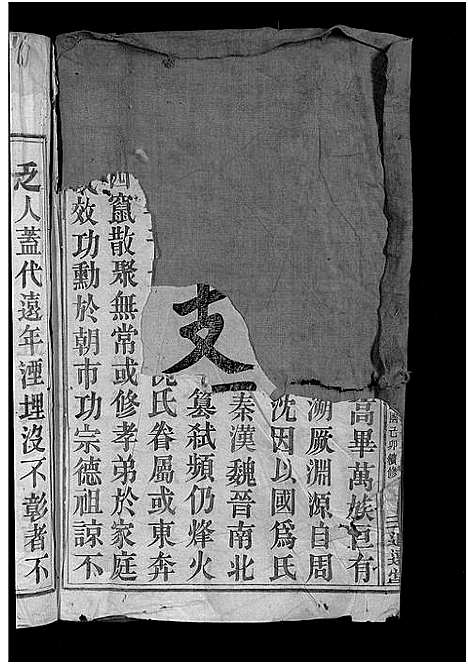 己卯續修
高畢萬族巨有
溯厥淵源自周
沈因以國爲氏
秦漢魏晉南北
篡弑頻仍烽火
氏眷屬或東奔
支一
四竄散聚無常或修孝弟於家庭
效功勳於朝市功宗德祖諒不
乏人蓋代遠年湮埋沒不彰者不